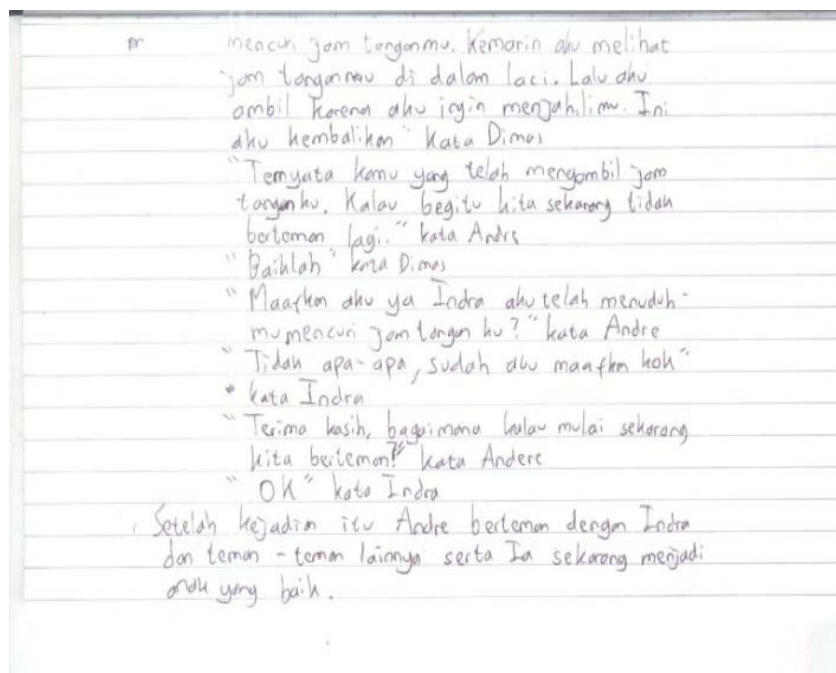 mencuri jam tanganmu. Kemarin aku melihat
jam tanganmu di dalam laci. Lalu aku
ambil karena aku ingin menjahilimu. Ini
aku kembalikan" kata Dimas
"Ternyata kamu yang telah mengambil jam
tanganku. Kalau begitu kita sekarang tidak
berteman lagi." kata Andre
"Baiklah" kata Dimas
"Maafkan aku ya Indra aku telah menuduh-
mu mencuri jam tangan ku?" kata Andre
"Tidak apa-apa, sudah aku maafkan kok"
kata Indra
"Terima kasih, bagaimana kalau mulai sekarang
kita berteman?" kata Andere
"OK" kata Indra
Setelah kejadian itu Andre berteman dengan Indra
dan teman-teman lainnya serta Ia sekarang menjadi
anak yang baik.